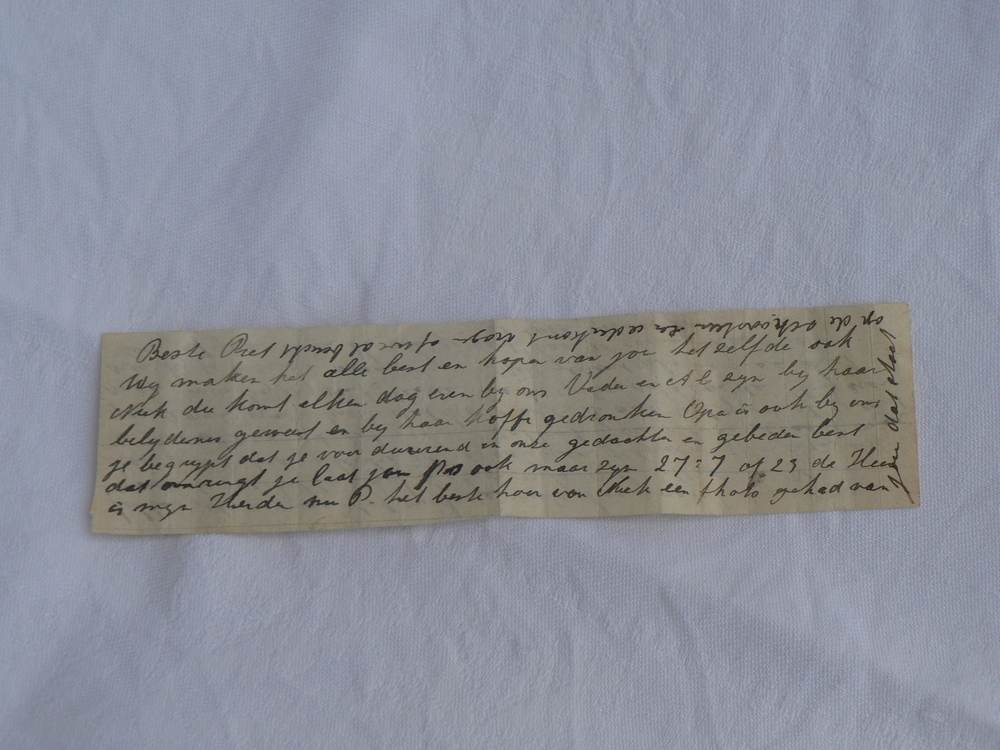 Beste Piet
Wij maken het alle best en hopen van jou het zelfde ook
Niek die komt elken dag even bij ons Vader en A l zijn bij haar
belijdenis geweest en bij haar koffi gedronken Opa is ook bij ons
je begrijpt dat je voordurend in onze gedachten en gebeden bent
dat omringt je laat jou ps ook maar zijn 27:7 of 23 de Heer
is mijn Herder nu P. het beste hoor van Niek een photo gehad van
jou dat staat
op de schoorsteen en iederkomt